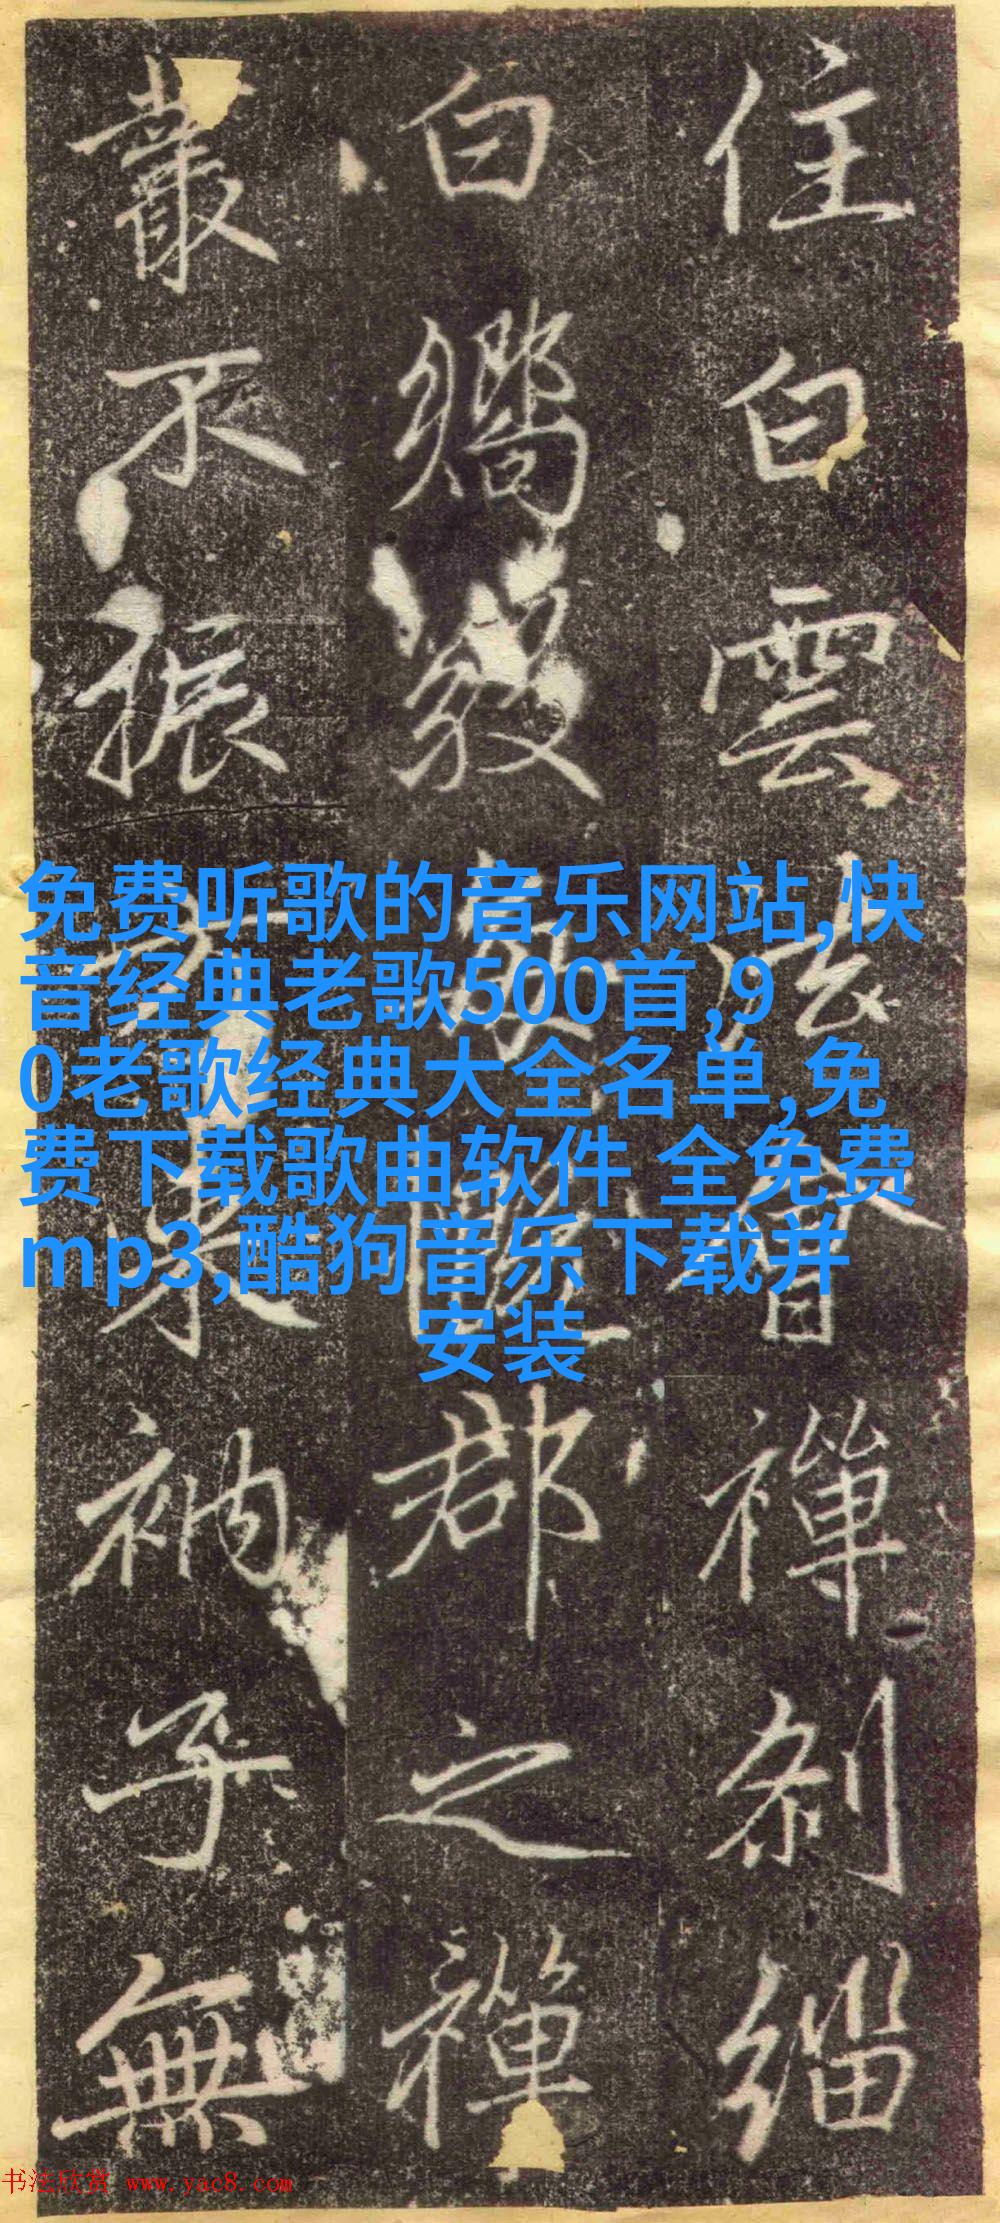 住白雲法會禪剎緇
白嚮數
郡之禪
叢不振
來衲子無
免费听歌的音乐网站,快
音经典老歌500首,9
0老歌经典大全名单,免
费下载歌曲软件 全免费
mp3,酷狗音乐下载并
安装
书法欣赏 www.yac8.com